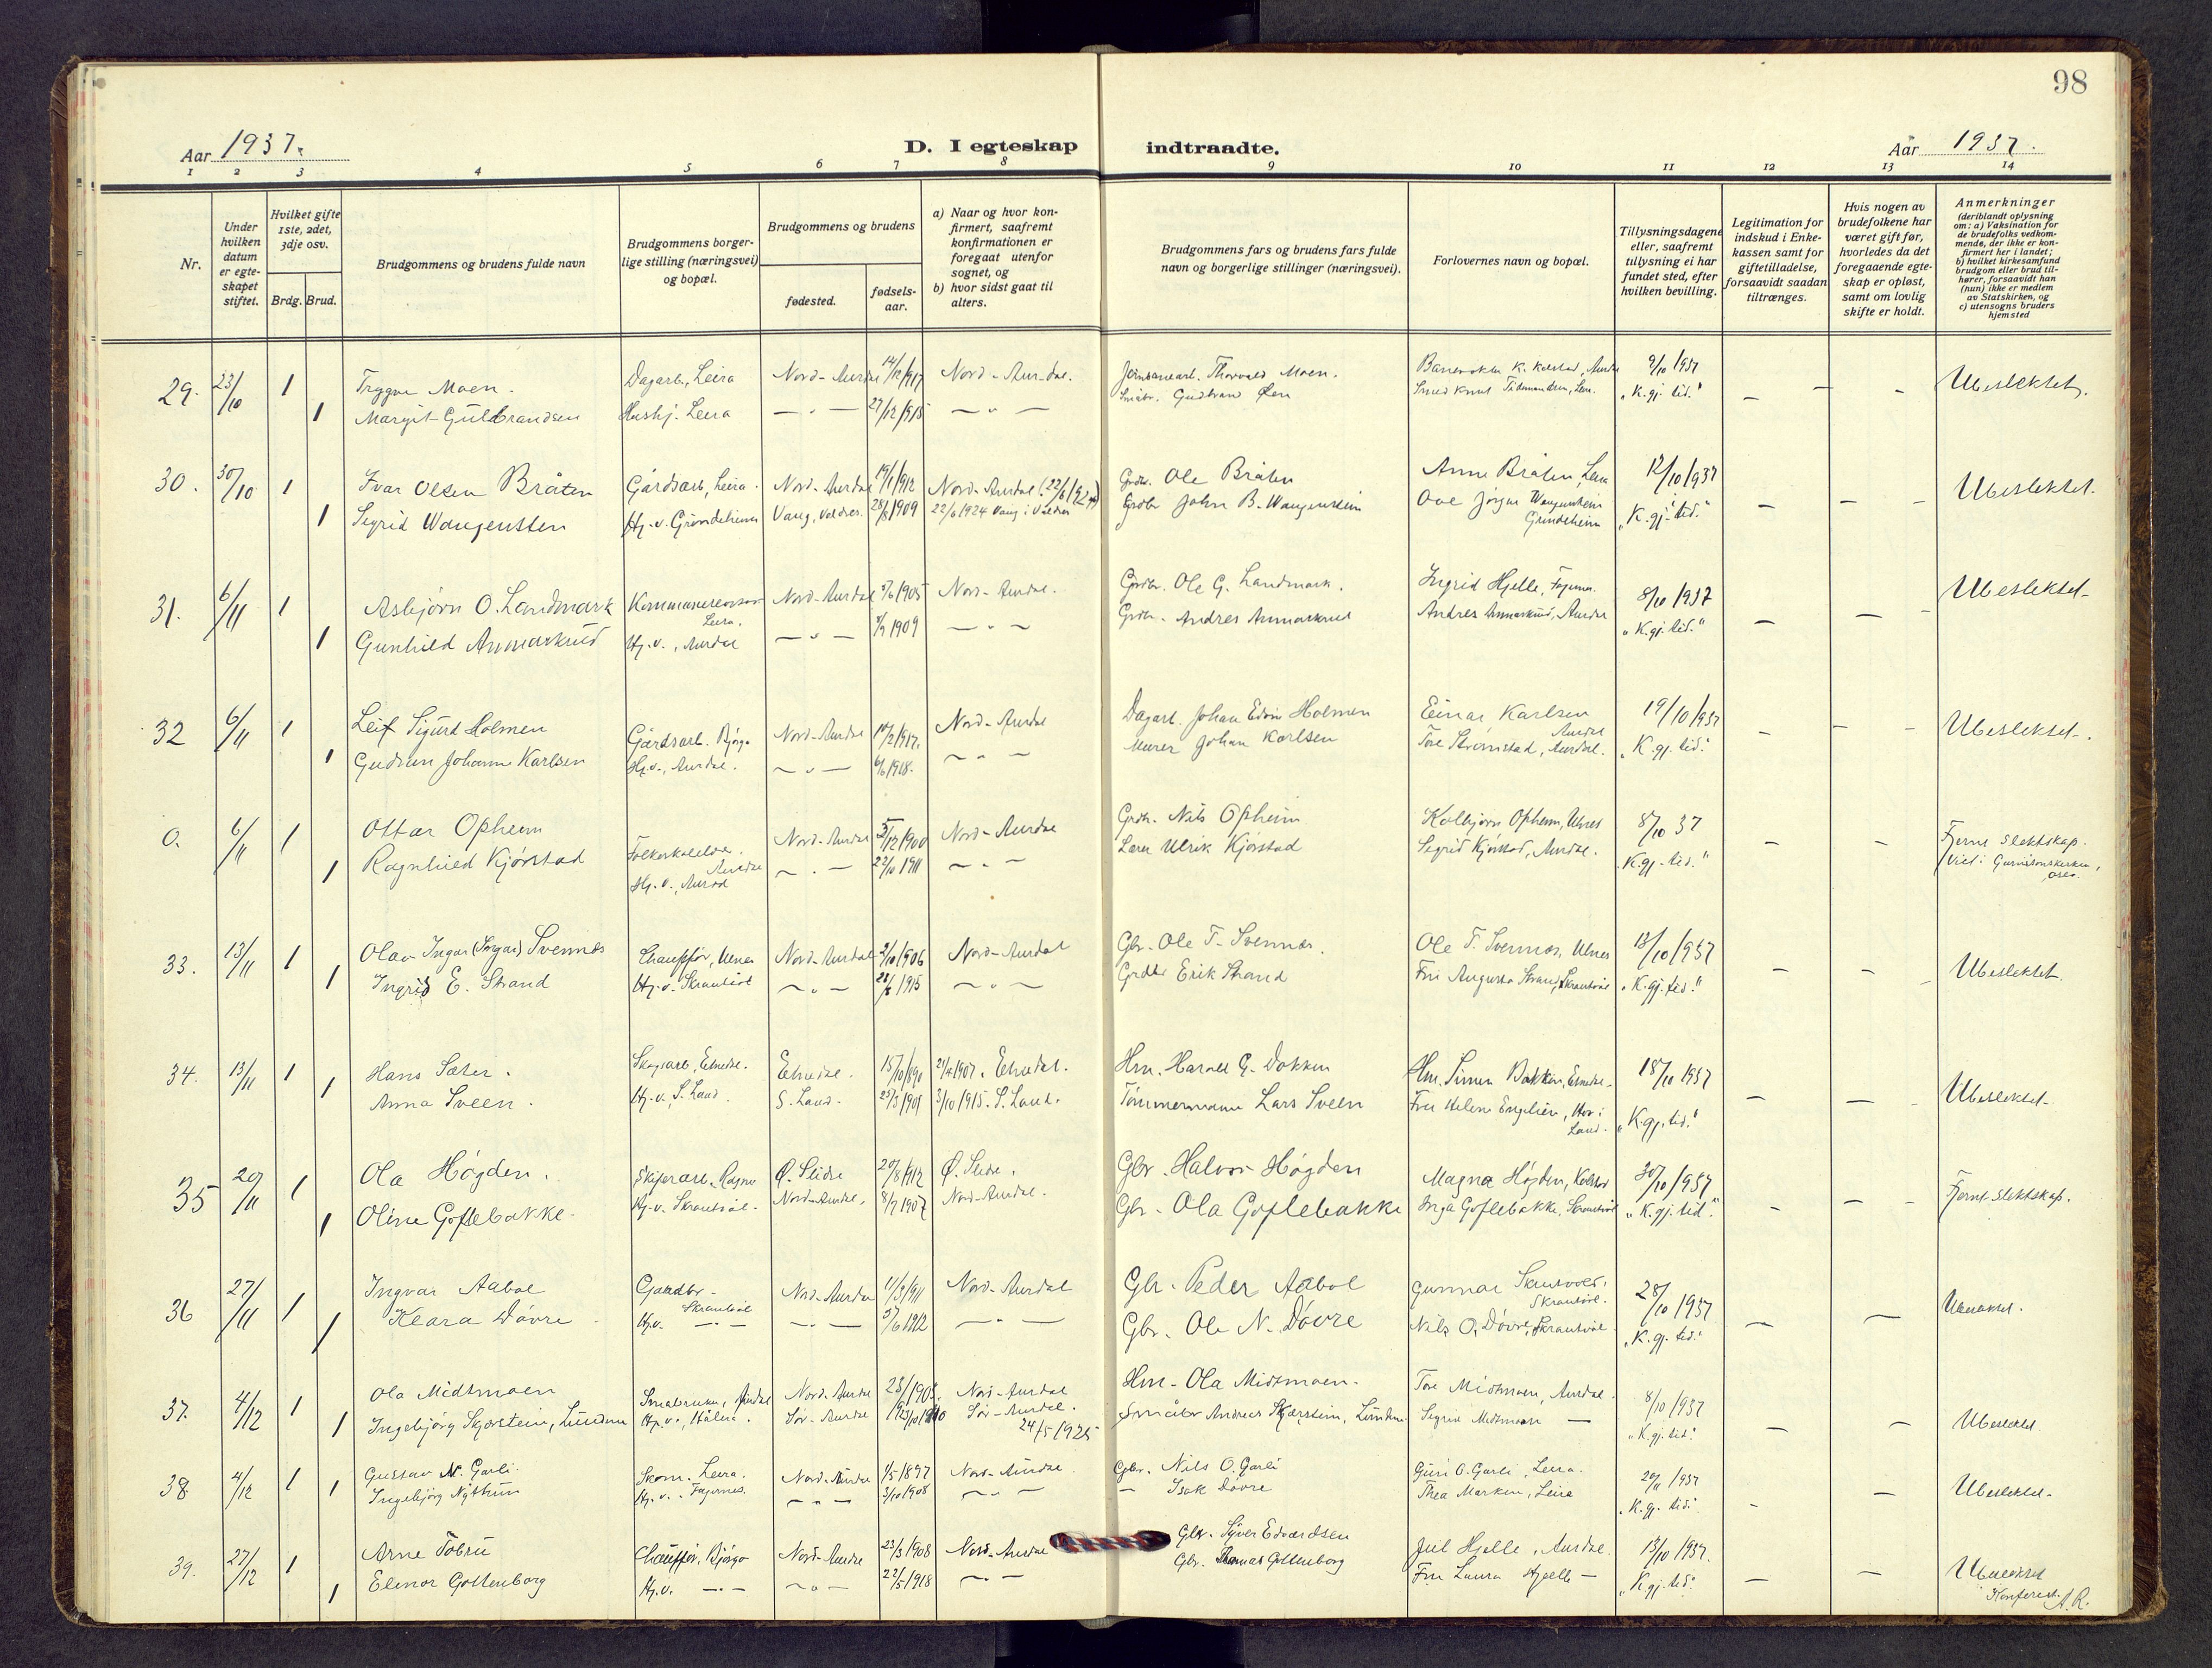 98
Aar 1937.
D. I egteskap indtraadte.
Aar 1937.
1 2 3 4 5 6 7 8 9 10 11 12 13 14
Nr.
Under hvilken datum er egteskapet stiftet.
Hvilket gifte 1ste, 2det, 3dje osv.
Brdg. Brud.
Brudgommens og brudens fulde navn
Brudgommens borgerlige stilling (næringsvei) og bopæl.
Brudgommens og brudens
fødested.
fødselsaar.
a) Naar og hvor konfirmert, saafremt konfirmationen er foregaat utenfor sognet, og
b) hvor sidst gaat til alters.
Brudgommens fars og brudens fars fulde navn og borgerlige stillinger (næringsvei).
Forlovernes navn og bopæl.
Tillysningsdagene eller, saafremt tillysning ei har fundet sted, efter hvilken bevilling.
Legitimation for indskud i Enkekassen samt for giftetilladelse, forsaavidt saadan tiltrænges.
Hvis nogen av brudefolkene har været gift før, hvorledes da det foregaaende egteskap er opløst, samt om lovlig skifte er holdt.
Anmerkninger
(deriblandt oplysning om: a) Vaksination for de brudefolks vedkommende, der ikke er konfirmert her i landet; b) hvilket kirkesamfund brudgom eller brud tilhører, forsaavidt han (hun) ikke er medlem av Statskirken, og c) utensogns bruders hjemsted
29. 23/10 1 Tryggve Moen. Dagarb., Leira Nord-Aurdal 14/12/1917 Nord-Aurdal. Thorvald Moen. K. Kolstad, Aurdal 9/10 1937 — — — Ubeslektet.
1 Margit Gulbrandsen Hushj. Leira — " — 27/12 1915 — " — Småbr. Gudbrand Øen Smed Knut Tidemandsen, Leira. "K. gj. tid."
30. 30/10 1 Ivar Olsen Bråten Gårdsarb., Leira. Nord-Aurdal 19/1/1912 Nord-Aurdal. Grdbr. Ole Bråten Anne Bråten, Leira 12/10/1937 — — — Ubeslektet.
1 Sigrid Waugensten Hj. v. Grindeheim Vang, Valdres. 28/8 1909 22/6 1924 Vang i Valdres Grdbr John B. Waugenstein Ove Jørgen Wangensteen Grindeheim "K. gj. tid."
31. 6/11 1 Asbjørn O. Landmark Kommunerevisor Leira. Nord-Aurdal 5/6 1905 Nord-Aurdal. Grdbr. Ole G. Landmark. Ingrid Hjelle, Fagernes 8/10 1937 — — — Ubeslektet
1 Gunhild Anmarkrud Hj. v., Aurdal — " — 5/9 1909 — " — Grdbr. Andres Anmarkrud Andres Anmarkrud, Aurdal "K. gj. tid."
32 6/11 1 Leif Sigurd Holmen Gårdsarb. Bjørgo Nord-Aurdal 14/2 1917. Nord-Aurdal Dagarb. Johan Edvin Holmen Einar Karlsen Aurdal 19/10/1937 — — — Ubeslektet.
1 Gudrun Johanne Karlsen Hj. v., Aurdal. — " — 6/6 1918. — " — Murer Johan Karlsen Tore Strømstad, Aurdal. "K. gj. tid."
0. 6/11 1 Ottar Opheim Folkeskolelærer. Aurdal Nord-Aurdal 5/12 1900 Nord-Aurdal Grdbr. Nils Opheim Kolbjørn Opheim, Ulnes 8/10 37 — — Fjernt slektskap.
1 Ragnhild Kjørstad Hj. v., Aurdal — " — 22/10 1911 — " — Lærer Ulrik Kjørstad Sigrid Kjørstad, Aurdal. "K. gj. tid." Viet i Garnisonskirken, Oslo.
33. 13/11 1 Olav Ingar (Ingar) Svennes Chauffør, Ulnes Nord-Aurdal 2/10 1906 Nord-Aurdal Gbr. Ole T. Svennes. Ole T. Svennes, Ulnes 13/10/1937 — — — Ubeslektet.
1 Ingrid E. Strand Hj. v. Skrautvål — " — 28/8 1915 — " — Grdbr Erik Strand Fru Augusta Strand, Skrautvål "K. gj. tid."
34. 13/11 1 Hans Sæter. Skogsarb., Etnedal. Etnedal. 15/10/1890 1907. Etnedal. Hm. Harald G. Dokken Hm. Simen Bakken, Etnedal. 18/10 1937 — — — Ubeslektet.
1 Anna Sveen. Hj. v. S. Land. S. Land. 23/3 1901 3/10 1915. S. Land. Tømmermann Lars Sveen Fru Helene Engelien, Hov i Land. "K. gj. tid."
35 20/11 1 Ola Høgden. Ø. Slidre 20/8/1912 Ø. Slidre. Gbr. Halvor Høgden Magna Høgden, 30/10/1937 — — — Fjernt slektskap.
1 Oline Goflebakke. Hj. v. Skrautvål. Nord-Aurdal. 8/7 1907 Nord-Aurdal. Gbr. Ola Goflebakke Inga Goflebakke, Skrautvål "K. gj. tid."
36 27/11 1 Ingvar Aabol Gardbr. Skrautvål Nord-Aurdal 11/3/1911 Nord-Aurdal Gbr. Peder Aabol Gunnar Skrautvol, Skrautvål. 28/10/1937 — — Ubeslektet.
1 Klara Døvre Hj. v. — " — — " — 5/6 1912 — " — Gbr. Ole N. Døvre Nils O. Døvre, Skrautvål "K. gj. tid."
37. 4/12 1 Ola Midtmoen Småbruker, Aurdal Nord-Aurdal 1905. Nord-Aurdal Hm. Ola Midtmoen. Tore Midtmoen, Aurdal. 8/10 1937 — — Ubeslektet
1 Ingebjørg Skjerstein, Lunden Hj. v., Sør-Aurdal 23/10 1910 Sør-Aurdal. 24/5 1925 Småbr Andreas Skjerstein, Lunden Sigrid Midtmoen — "K. gj. tid."
38 4/12 1 Gustav N. Garli Skom. Leira. Nord-Aurdal 1/5 1897 Nord-Aurdal Gbr. Nils O. Garli Guri O. Garli, Leira. 20/11 1937 — — Ubeslektet.
1 Ingebjørg Nythun Hj. v. Fagernes. — " — 3/10 1908 — " — — Isak Døvre Thea Marken, Leira "K. gj. tid."
39. 27/12 1 Arne Tobru Chauffør, Bjørgo Nord-Aurdal 23/3 1908 Nord-Aurdal Gbr. Syver Edvardsen Juul Hjelle, Aurdal. 13/10 1937. — — — Ubeslektet
1 Elinor Gottenborg Hj. v. — " — — " — 22/5 1918 — " — Gbr. Thomas Gottenborg Fru Laura Hjelle — "K. gj. tid."
Konferert. A. R.